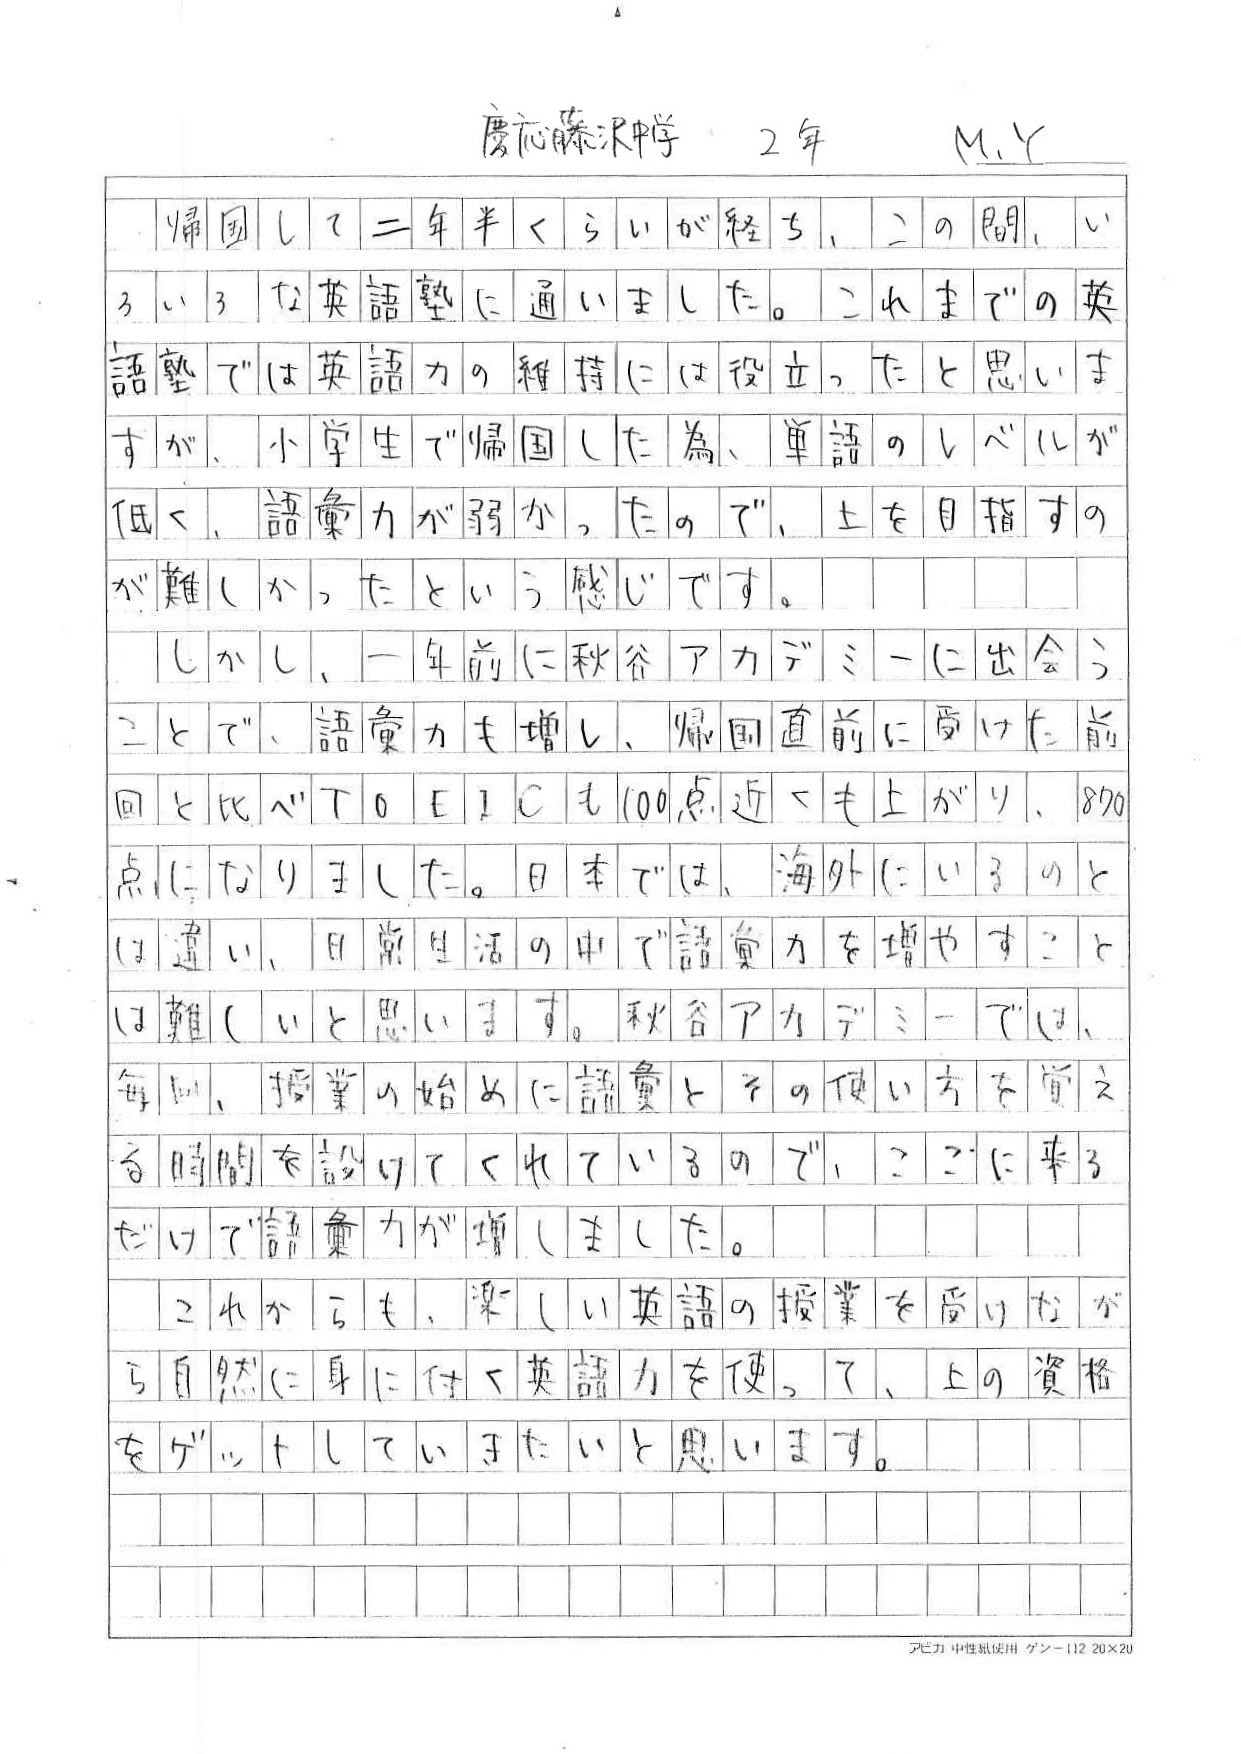 慶応藤沢中学 2年 M.Y
帰国して二年半くらいが経ち、この間、い
ろいろな英語塾に通いました。これまでの英
語塾では英語力の維持には役立ったと思いま
すが、小学生で帰国した為、単語のレベルが
低く、語彙力が弱かったので、上を目指すの
が難しかったという感じです。
しかし、一年前に秋谷アカデミーに出会う
ことで、語彙力も増し、帰国直前に受けた前
回と比べTOEICも100点近くも上がり、870
点になりました。日本では、海外にいるのと
は違い、日常生活の中で語彙力を増やすこと
は難しいと思います。秋谷アカデミーでは、
毎回、授業の始めに語彙とその使い方を覚え
る時間を設けてくれているので、ここに来る
だけで語彙力が増しました。
これからも、楽しい英語の授業を受けなが
ら自然に身に付く英語力を使って、上の資格
をゲットしていきたいと思います。
アピカ 中性紙使用 ゲンー112 20×20